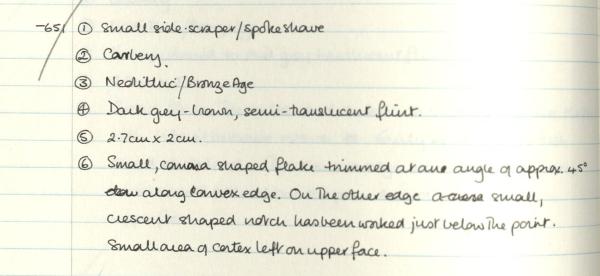 -65, ① Small side-scraper/spokeshave
② Carbery.
③ Neolithic/Bronze Age
④ Dark grey-brown, semi-translucent flint.
⑤ 2.7cm x 2cm.
⑥ Small, comma shaped flake trimmed at an angle of approx. 45°
along convex edge. On the other edge a small,
crescent shaped notch has been worked just below the point.
Small area of cortex left on upper face.